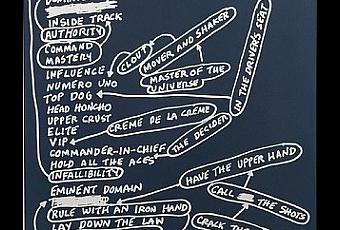 INSIDE TRACK
AUTHORITY
COMMAND
MASTERY
INFLUENCE
NUMERO UNO
TOP DOG
HEAD HONCHO
UPPER CRUST
ELITE
VIP
COMMANDER-IN-CHIEF
HOLD ALL THE ACES
INFALLIBILITY
EMINENT DOMAIN
RULE WITH AN IRON HAND
LAY DOWN THE LAW
CLOUT
MOVER AND SHAKER
MASTER OF THE
UNIVERSE
IN THE DRIVERS SEAT
CRÈME DE LA CRÈME
THE DECIDER
HAVE THE UPPER HAND
CALL THE SHOTS
CRACK THE